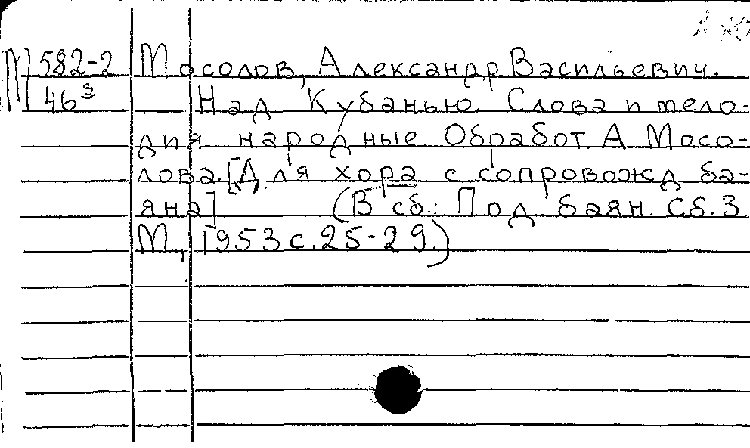 М 582-2 Мосолов, Александр Васильевич.
46³ Над Кубанью. Слова и мело-
дия народные Обработ. А Мосо-
лова. [Для хора с сопровожд ба-
яна] (В сб: Под баян. Сб. 3
М, 1953 с. 25-29.)